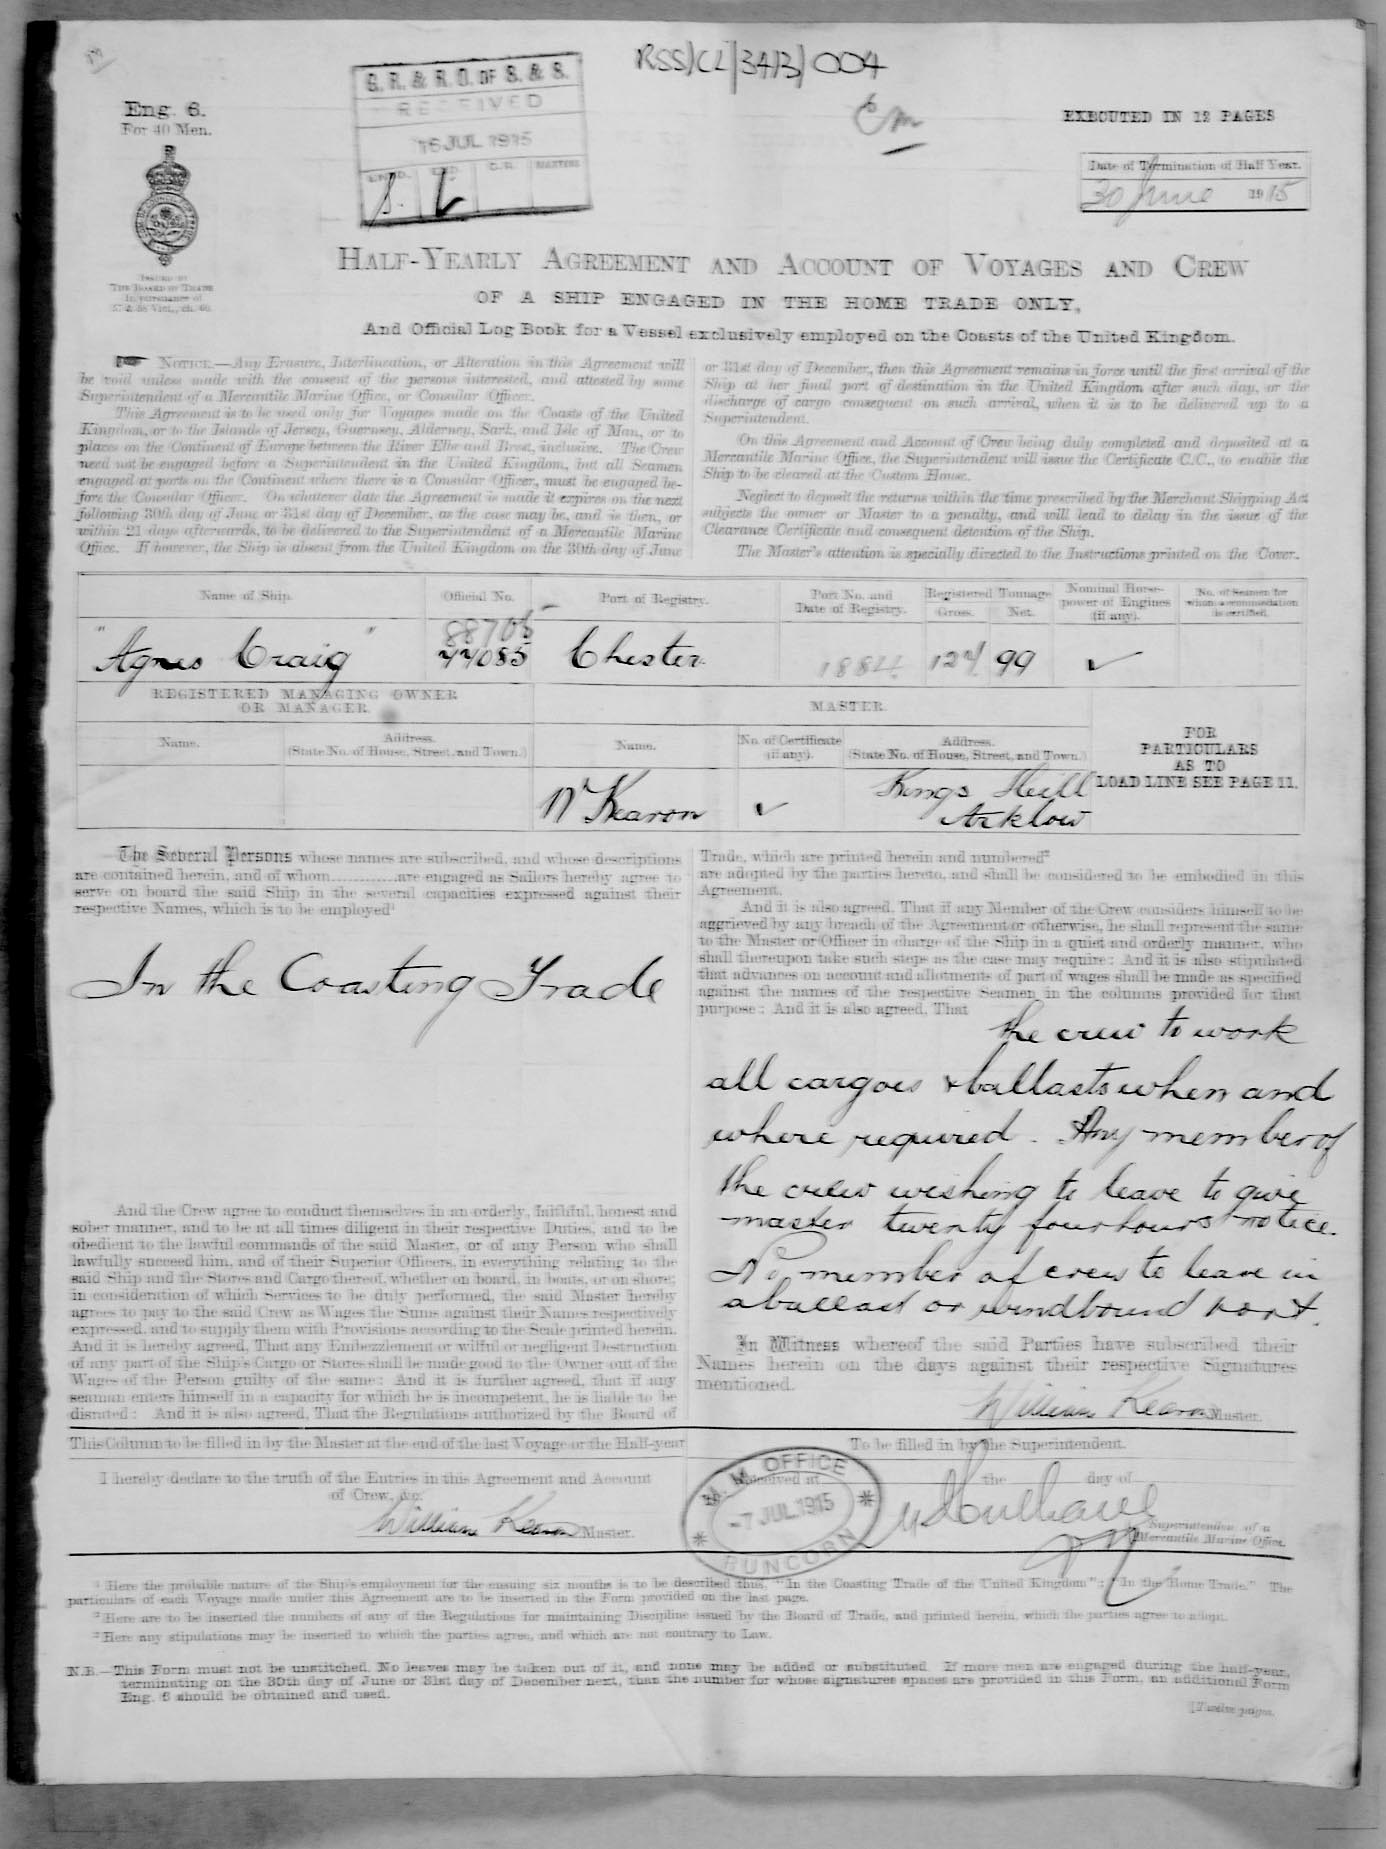 RSS/CL/3413/004
G. R. & R. O. OF S. & S.
RECEIVED
16 JUL 1915
C.R. MASTERS
Eng. 6.
For 40 Men.
EXECUTED IN 12 PAGES
Date of Termination of Half Year.
30 June 1915
ISSUED BY
THE BOARD OF TRADE
in pursuance of
57 & 58 Vict., ch. 60.
HALF-YEARLY AGREEMENT AND ACCOUNT OF VOYAGES AND CREW
OF A SHIP ENGAGED IN THE HOME TRADE ONLY,
And Official Log Book for a Vessel exclusively employed on the Coasts of the United Kingdom.
NOTICE.—Any Erasure, Interlineation, or Alteration in this Agreement will
be void unless made with the consent of the persons interested, and attested by some
Superintendent of a Mercantile Marine Office, or Consular Officer.
This Agreement is to be used only for Voyages made on the Coasts of the United
Kingdom, or to the Islands of Jersey, Guernsey, Alderney, Sark, and Isle of Man, or to
places on the Continent of Europe between the River Elbe and Brest, inclusive. The Crew
need not be engaged before a Superintendent in the United Kingdom, but all Seamen
engaged at ports on the Continent where there is a Consular Officer, must be engaged be-
fore the Consular Officer. On whatever date the Agreement is made it expires on the next
following 30th day of June or 31st day of December, as the case may be, and is then, or
within 21 days afterwards, to be delivered to the Superintendent of a Mercantile Marine
Office. If however, the Ship is absent from the United Kingdom on the 30th day of June
or 31st day of December, then this Agreement remains in force until the first arrival of the
Ship at her final port of destination in the United Kingdom after such day, or the
discharge of cargo consequent on such arrival, when it is to be delivered up to a
Superintendent.
On this Agreement and Account of Crew being duly completed and deposited at a
Mercantile Marine Office, the Superintendent will issue the Certificate C.C., to enable the
Ship to be cleared at the Custom House.
Neglect to deposit the returns within the time prescribed by the Merchant Shipping Act
subjects the owner or Master to a penalty, and will lead to delay in the issue of the
Clearance Certificate and consequent detention of the Ship.
The Master's attention is specially directed to the Instructions printed on the Cover.
Name of Ship. Official No. Port of Registry. Port No. and Date of Registry. Registered Tonnage Gross. Net. Nominal Horse-power of Engines (if any). No. of Seamen for whom accommodation is certified.
88705
"Agnes Craig" 77085 Chester 1884 127 99 ✓
REGISTERED MANAGING OWNER
OR MANAGER.
MASTER.
Name. Address. (State No. of House, Street, and Town.) Name. No. of Certificate (if any). Address. (State No. of House, Street, and Town.)
FOR
PARTICULARS
AS TO
LOAD LINE SEE PAGE 11.
Wm Kearon ✓ Kings Hill
Arklow
The Several Persons whose names are subscribed, and whose descriptions
are contained herein, and of whom............are engaged as Sailors hereby agree to
serve on board the said Ship in the several capacities expressed against their
respective Names, which is to be employed¹
In the Coasting Trade
And the Crew agree to conduct themselves in an orderly, faithful, honest and
sober manner, and to be at all times diligent in their respective Duties, and to be
obedient to the lawful commands of the said Master, or of any Person who shall
lawfully succeed him, and of their Superior Officers, in everything relating to the
said Ship and the Stores and Cargo thereof, whether on board, in boats, or on shore;
in consideration of which Services to be duly performed, the said Master hereby
agrees to pay to the said Crew as Wages the Sums against their Names respectively
expressed, and to supply them with Provisions according to the Scale printed herein.
And it is hereby agreed, That any Embezzlement or wilful or negligent Destruction
of any part of the Ship's Cargo or Stores shall be made good to the Owner out of the
Wages of the Person guilty of the same: And it is further agreed, that if any
seaman enters himself in a capacity for which he is incompetent, he is liable to be
disrated: And it is also agreed, That the Regulations authorized by the Board of
Trade, which are printed herein and numbered²
are adopted by the parties hereto, and shall be considered to be embodied in this
Agreement.
And it is also agreed, That if any Member of the Crew considers himself to be
aggrieved by any breach of the Agreement or otherwise, he shall represent the same
to the Master or Officer in charge of the Ship in a quiet and orderly manner, who
shall thereupon take such steps as the case may require: And it is also stipulated
that advances on account and allotments of part of wages shall be made as specified
against the names of the respective Seamen in the columns provided for that
purpose: And it is also agreed, That
the crew to work
all cargoes & ballasts when and
where required. Any member of
the crew wishing to leave to give
master twenty four hours notice.
No member of crew to leave in
a ballast or windbound port.
In Witness whereof the said Parties have subscribed their
Names herein on the days against their respective Signatures
mentioned.
William Kearon Master.
This Column to be filled in by the Master at the end of the last Voyage or the Half-year
I hereby declare to the truth of the Entries in this Agreement and Account
of Crew, &c.
William Kearon Master.
To be filled in by the Superintendent.
Received at the day of
M. M. OFFICE
-7 JUL 1915
RUNCORN
Superintendent of a
Mercantile Marine Office.
¹ Here the probable nature of the Ship's employment for the ensuing six months is to be described thus, "In the Coasting Trade of the United Kingdom"; "In the Home Trade." The
particulars of each Voyage made under this Agreement are to be inserted in the Form provided on the last page.
² Here are to be inserted the numbers of any of the Regulations for maintaining Discipline issued by the Board of Trade, and printed herein, which the parties agree to adopt.
³ Here any stipulations may be inserted to which the parties agree, and which are not contrary to Law.
N.B.—This Form must not be unstitched. No leaves may be taken out of it, and none may be added or substituted. If more men are engaged during the half-year,
terminating on the 30th day of June or 31st day of December next, than the number for whose signatures spaces are provided in this Form, an additional Form
Eng. 6 should be obtained and used.
[Twelve pages.